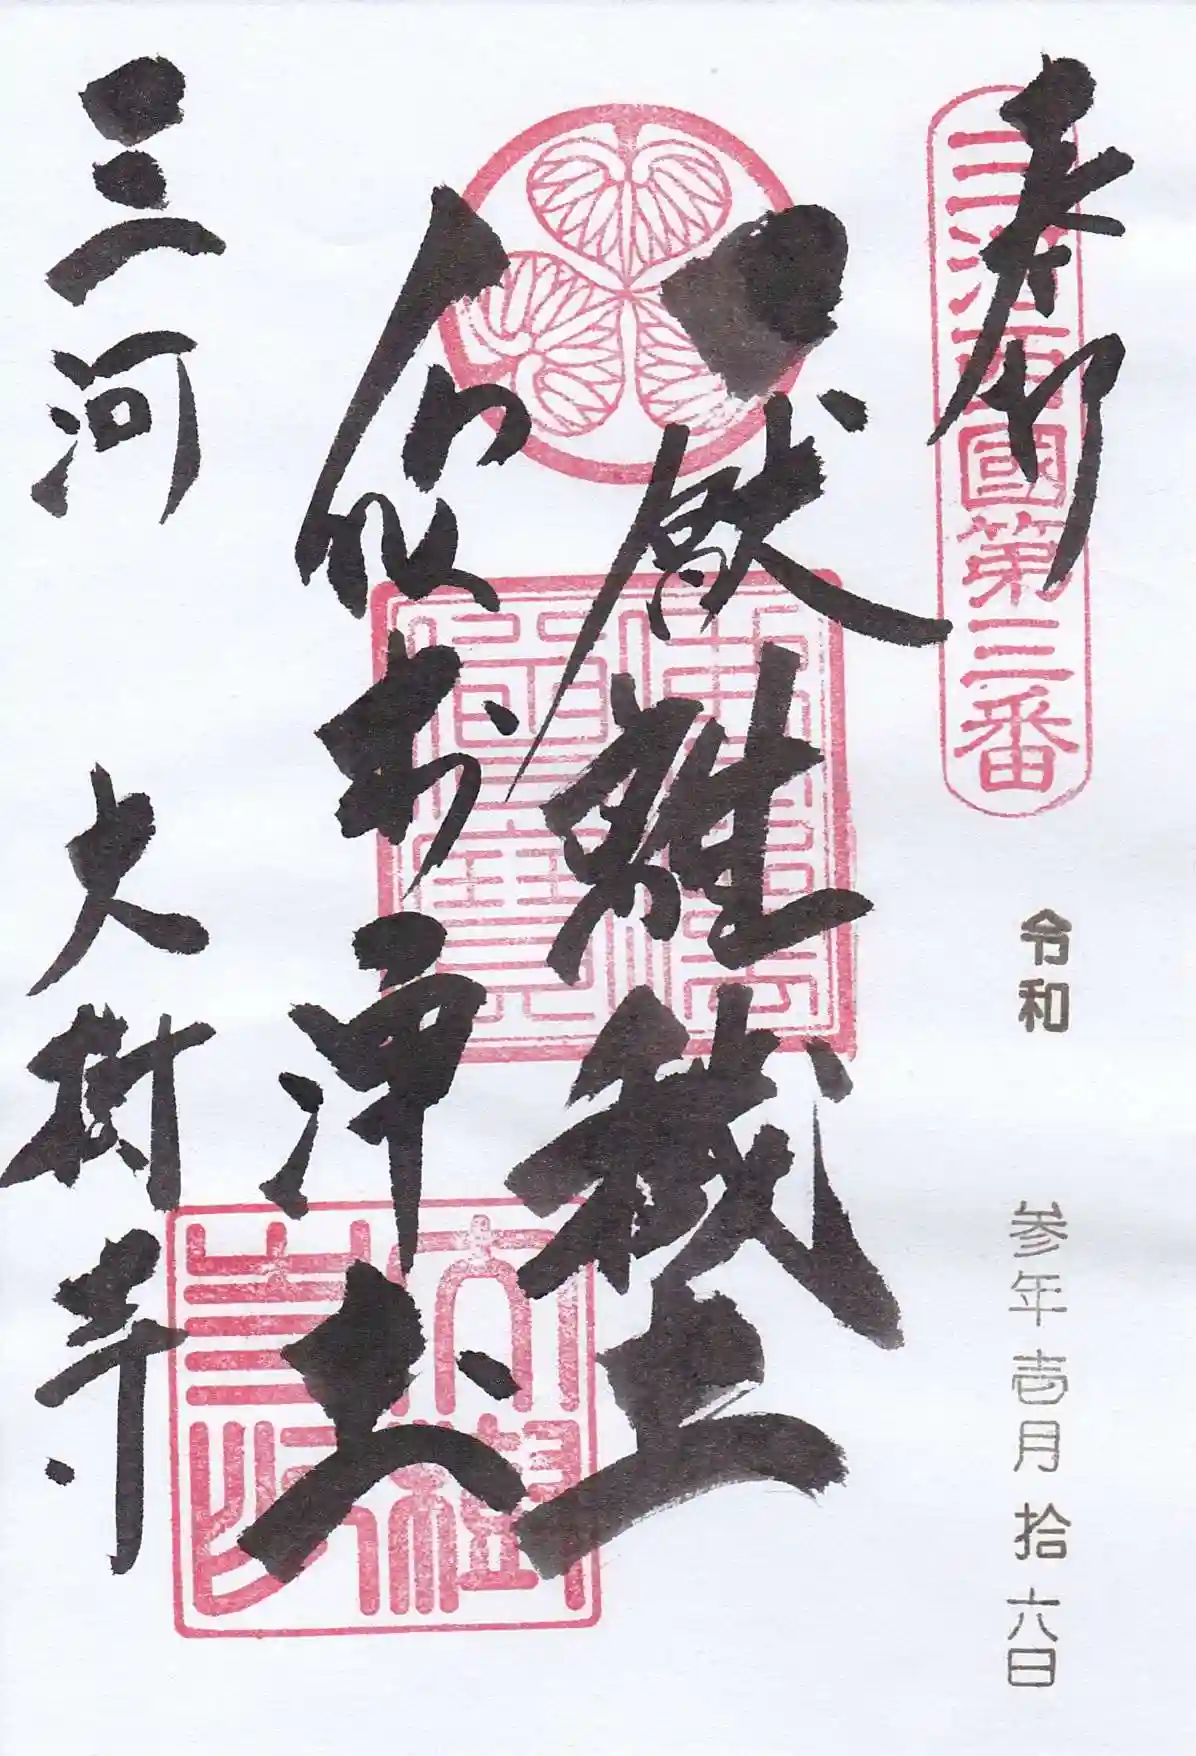 奉拝
三河西國第三番
令和 参年壱月拾六日
厭離穢土
欣求浄土
三河 大樹寺